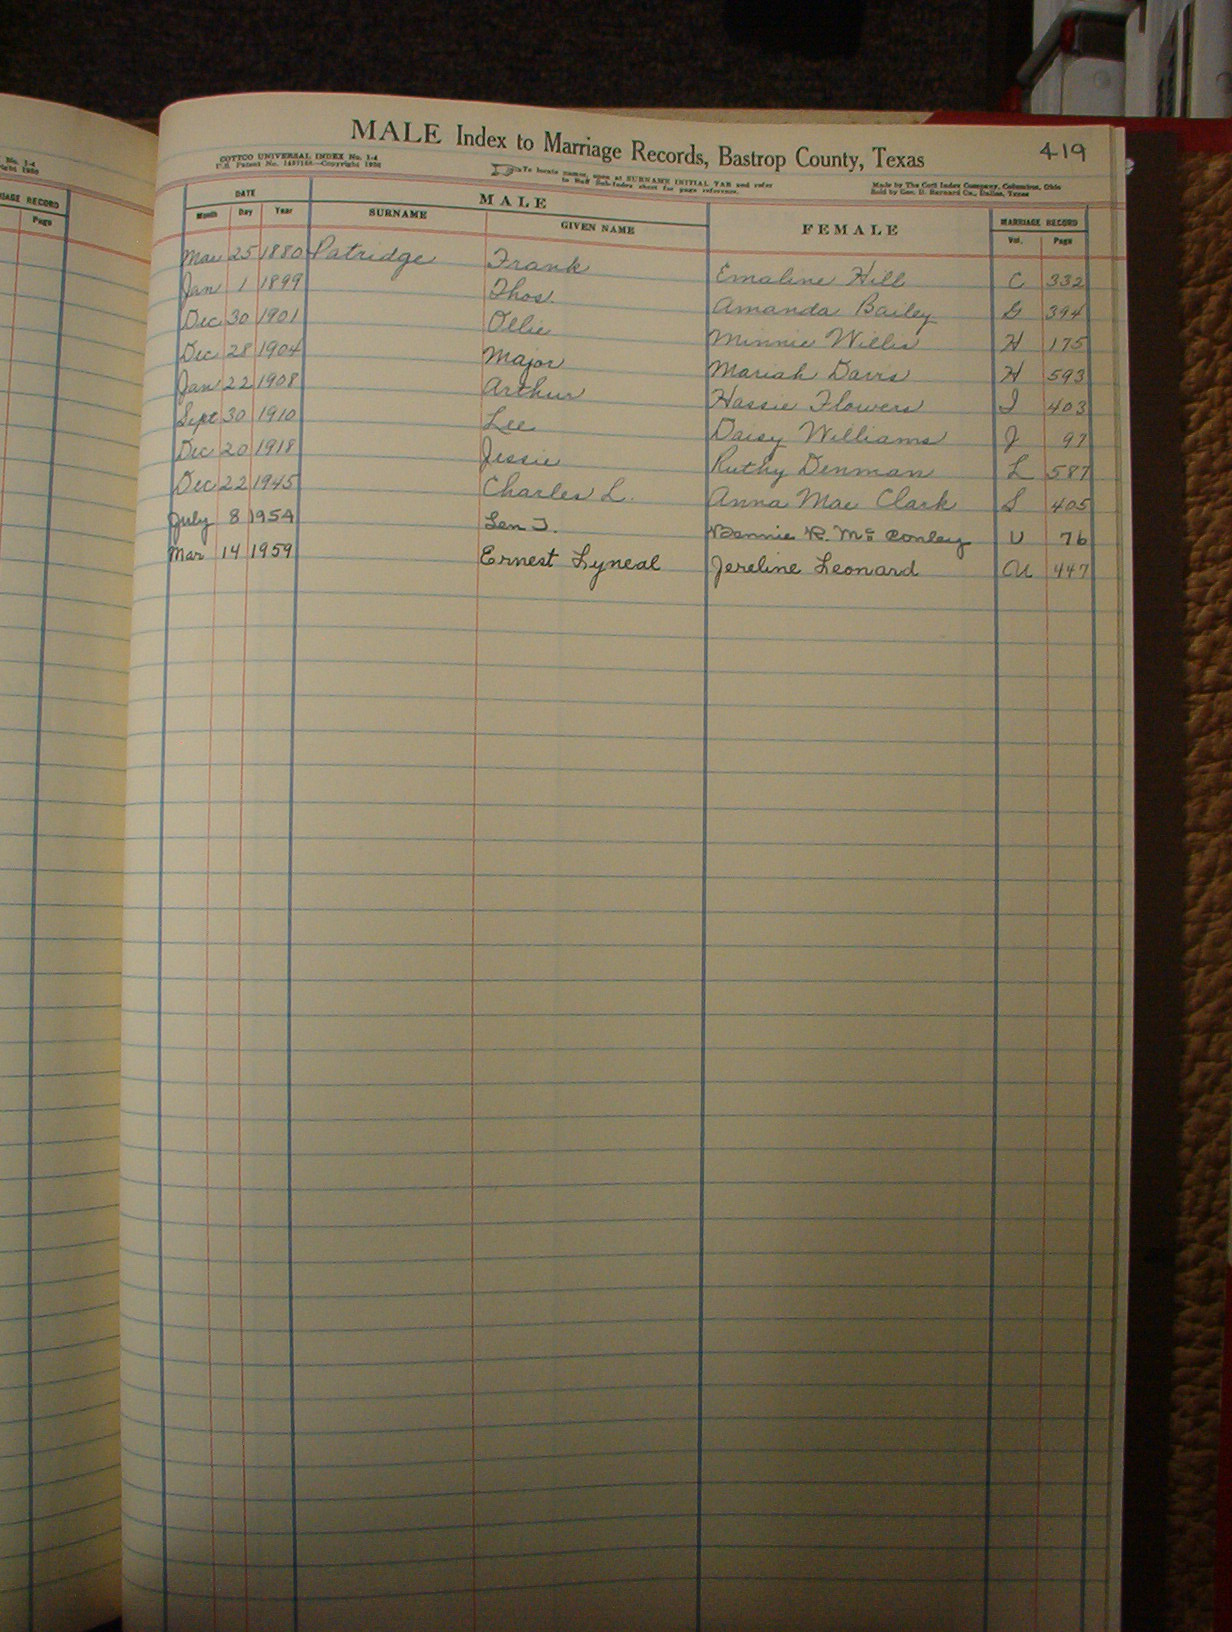 MALE Index to Marriage Records, Bastrop County, Texas
419
COTTCO UNIVERSAL INDEX No. 1-4
U.S. Patent No. 1457166—Copyright 1936
To locate names, open at SURNAME INITIAL TAB and refer
to Stiff Sub-Index sheet for page reference.
Made by The Cott Index Company, Columbus, Ohio
Sold by Geo. D. Barnard Co., Dallas, Texas
DATE MALE FEMALE MARRIAGE RECORD
Month Day Year SURNAME GIVEN NAME Vol. Page
Mar 25 1880 Patridge Frank Emaline Hill C 332
Jan 1 1899 Thos. Amanda Bailey G 394
Dec 30 1901 Ollie Minnie Willis H 175
Dec 28 1904 Major Mariah Davis H 593
Jan 22 1908 Arthur Hassie Flowers I 403
Sept 30 1910 Lee Daisy Williams J 97
Dec 20 1918 Jessie Ruthy Denman L 587
Dec 22 1945 Charles L. Anna Mae Clark S 405
July 8 1954 Len J. Bennie R. McConley U 76
Mar 14 1959 Ernest Lyneal Jereline Leonard U 447
No. 1-4
RECORD
Page